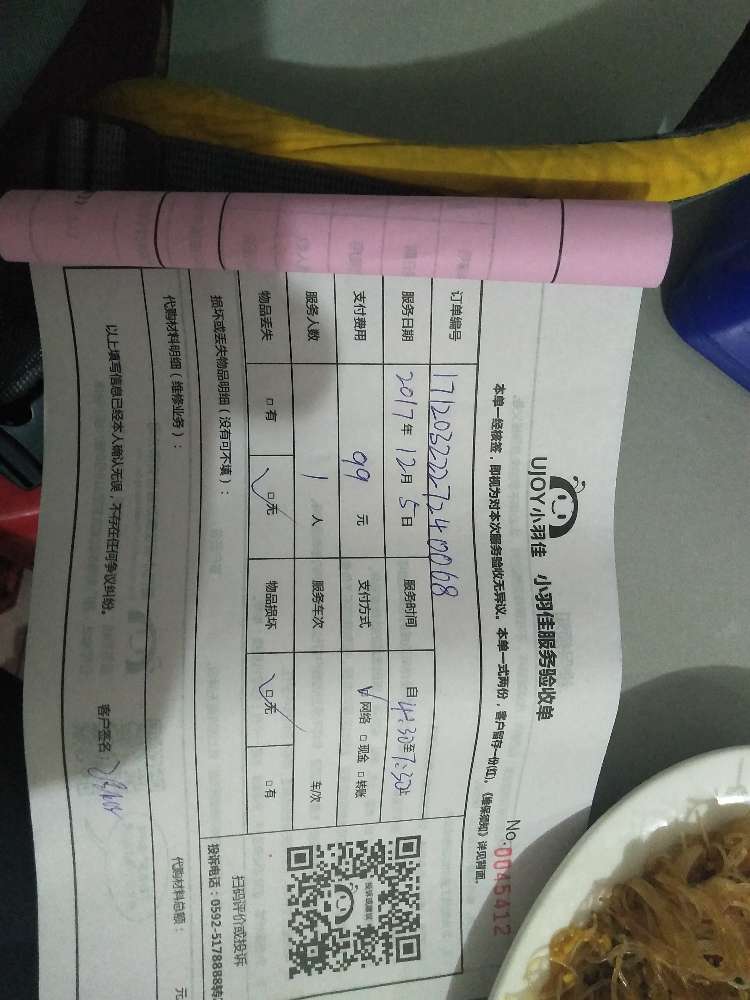 UJOY小羽佳 小羽佳服务验收单
No.0045412
本单一经核签，即视为对本次服务验收无异议。本单一式两份，客户留存一份(红)。《维保须知》详见背面。
订单编号 171203222724 0068
服务日期 2017年 12月 5日 服务时间 自 4:30至7:30止
支付费用 99 元 支付方式 网络 现金 转账
服务人数 1 人 服务车次 车/次
物品丢失 有 无 物品损坏 无 有
损坏或丢失物品明细（没有可不填）：
扫码评价或投诉
投诉电话：0592-5178888转
代购材料明细（维修业务）：
代购材料总额： 元
以上填写信息已经本人确认无误，不存在任何争议纠纷。 客户签名：